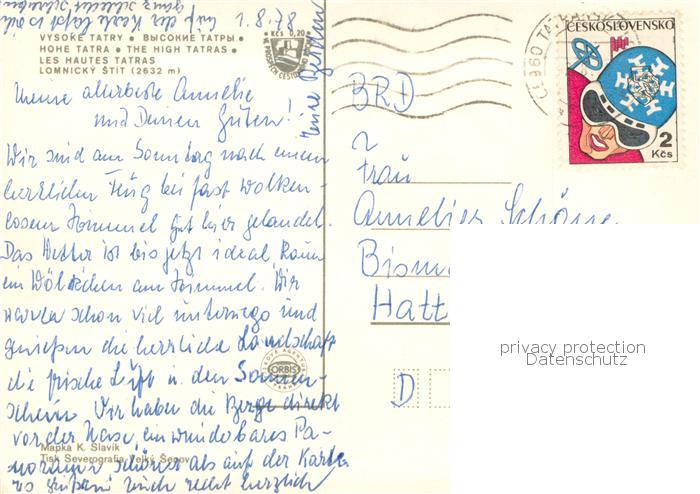 1.8.78
VYSOKÉ TATRY • ВЫСОКИЕ ТАТРЫ •
HOHE TATRA • THE HIGH TATRAS •
LES HAUTES TATRAS
LOMNICKÝ ŠTÍT (2632 m)
Kčs 0,20
Meine allerbeste Annelie
und Deinen Guten!
Wir sind am Sonntag nach einem
herrlichen Flug bei fast wolken-
losem Himmel gut hier gelandet.
Das Wetter ist bis jetzt ideal, kaum
ein Wölkchen am Himmel. Wir
waren schon viel unterwegs und
genießen die herrliche Landschaft
die frische Luft u. den Sonnen-
schein. Wir haben die Berge direkt
vor der Nase, ein wunderbares Pa-
norama schöner als auf der Karte
es grüßen Euch recht herzlich
Mapka K. Slavík
Tisk Severografia Velký Šenov
ORBIS
ČESKOSLOVENSKO
2
Kčs
BRD
Frau
Annelies
Bism
Hatt
D
privacy protection
Datenschutz